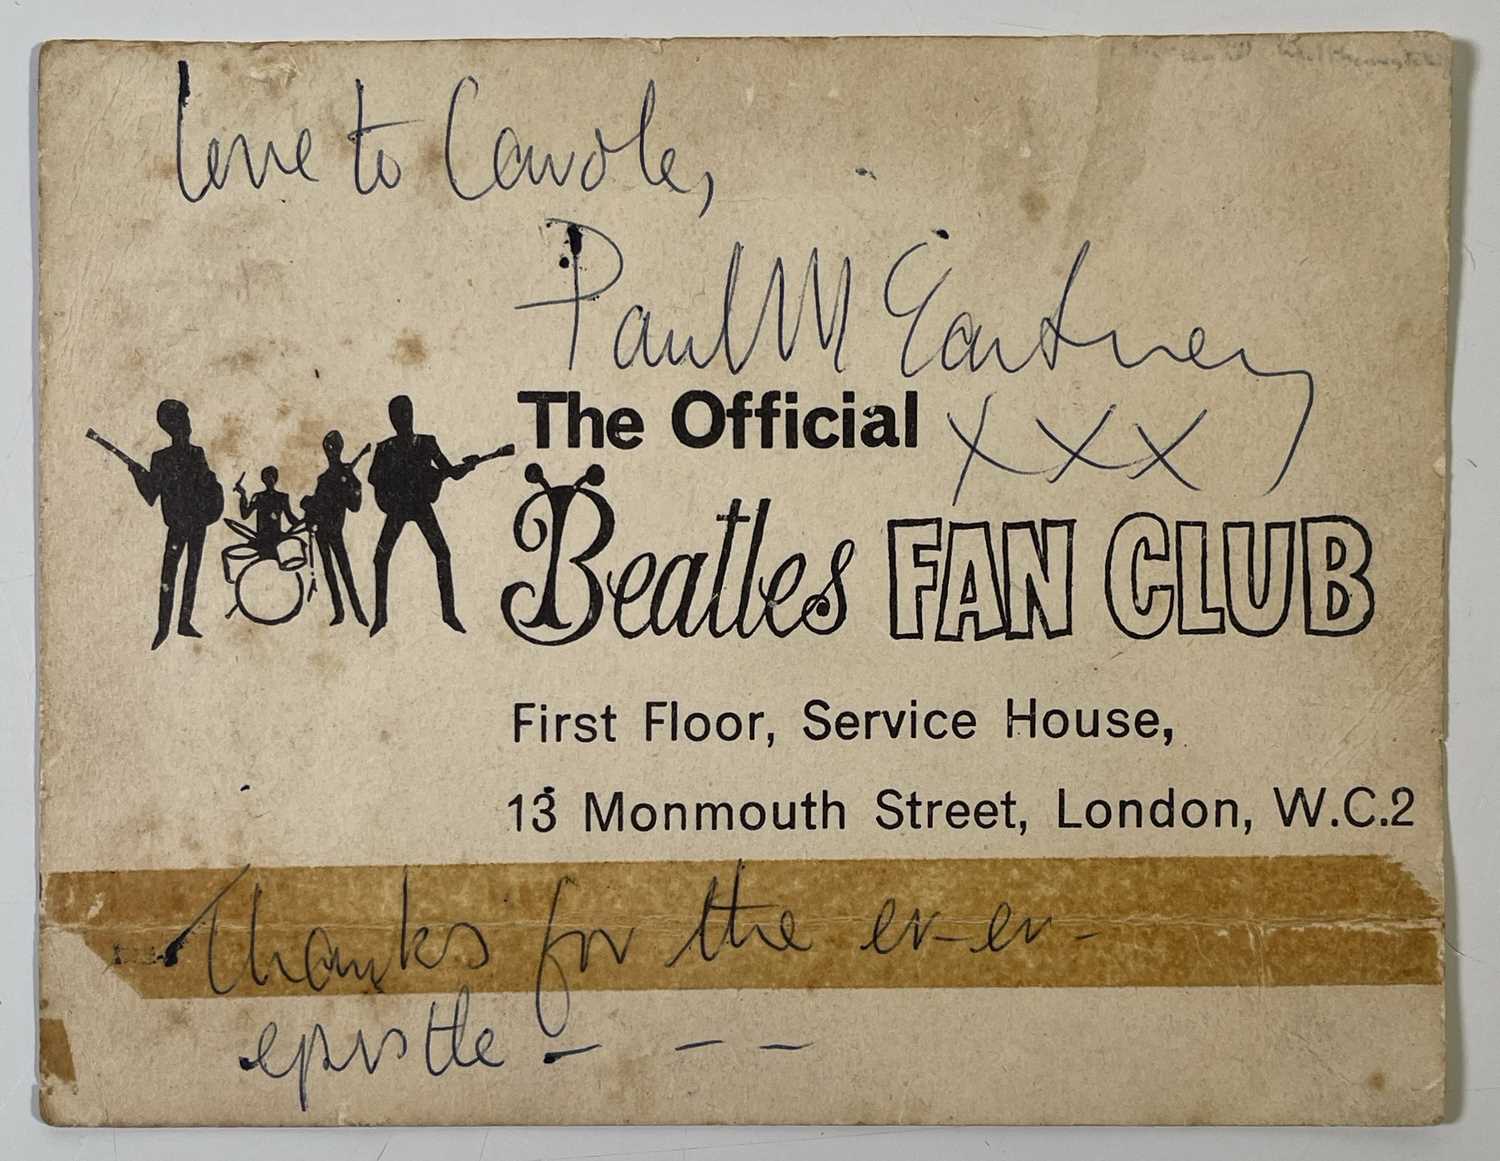 love to Carole,
Paul McCartney
xxx
The Official
Beatles FAN CLUB
First Floor, Service House,
13 Monmouth Street, London, W.C.2
Thanks for the er-er-
epistle - - -